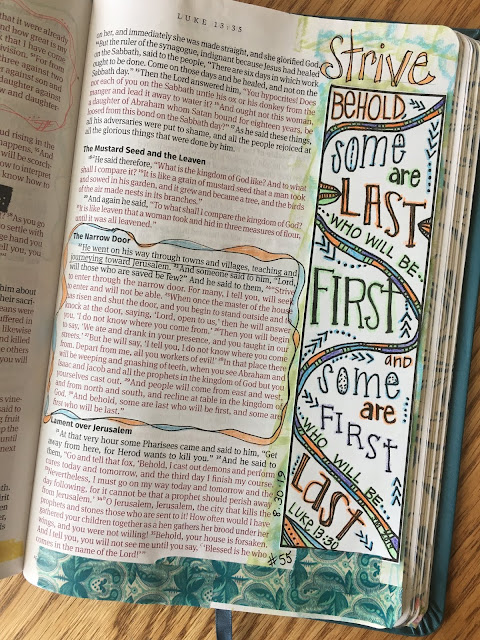 that it were already
and how great is my
k that I have come
division. For from
three against two
r against son and
daughter against
aw and daughter-
oud rising in the
happens. And
will be scorch-
ow to interpret
know how to
As you go
to settle with
ge hand you
tell you, you
him about
their sacri-
eans were
suffered in
likewise
nd killed
e others
you will
LUKE 13:35
on her, and immediately she was made straight, and she glorified God.
But the ruler of the synagogue, indignant because Jesus had healed
on the Sabbath, said to the people, "There are six days in which work
ought to be done. Come on those days and be healed, and not on the
Sabbath day." 15 Then the Lord answered him, "You hypocrites! Does
not each of you on the Sabbath untie his ox or his donkey from the
manger and lead it away to water it? 16 And ought not this woman,
a daughter of Abraham whom Satan bound for eighteen years, be
loosed from this bond on the Sabbath day?" 17 As he said these things,
all his adversaries were put to shame, and all the people rejoiced at
all the glorious things that were done by him.
The Mustard Seed and the Leaven
18 He said therefore, "What is the kingdom of God like? And to what
shall I compare it? 19 It is like a grain of mustard seed that a man took
and sowed in his garden, and it grew and became a tree, and the birds
of the air made nests in its branches."
20 And again he said, "To what shall I compare the kingdom of God?
21 It is like leaven that a woman took and hid in three measures of flour,
until it was all leavened."
The Narrow Door
22 He went on his way through towns and villages, teaching and
journeying toward Jerusalem. 23 And someone said to him, "Lord,
will those who are saved be few?" And he said to them, 24 "Strive
to enter through the narrow door. For many, I tell you, will seek
to enter and will not be able. 25 When once the master of the house
has risen and shut the door, and you begin to stand outside and to
knock at the door, saying, 'Lord, open to us,' then he will answer
you, 'I do not know where you come from.' 26 Then you will begin
to say, 'We ate and drank in your presence, and you taught in our
streets.' 27 But he will say, 'I tell you, I do not know where you come
from. Depart from me, all you workers of evil!' 28 In that place there
will be weeping and gnashing of teeth, when you see Abraham and
Isaac and Jacob and all the prophets in the kingdom of God but you
yourselves cast out. 29 And people will come from east and west,
and from north and south, and recline at table in the kingdom of
God. 30 And behold, some are last who will be first, and some are
first who will be last."
Lament over Jerusalem
31 At that very hour some Pharisees came and said to him, "Get
away from here, for Herod wants to kill you." 32 And he said to
them, "Go and tell that fox, 'Behold, I cast out demons and perform
cures today and tomorrow, and the third day I finish my course.
33 Nevertheless, I must go on my way today and tomorrow and the
day following, for it cannot be that a prophet should perish away
from Jerusalem.' 34 O Jerusalem, Jerusalem, the city that kills the
prophets and stones those who are sent to it! How often would I have
gathered your children together as a hen gathers her brood under her
wings, and you were not willing! 35 Behold, your house is forsaken.
And I tell you, you will not see me until you say, 'Blessed is he who
comes in the name of the Lord!'"
Strive
BEHOLD,
Some
are
LAST
WHO WILL BE
FIRST
and
Some
are
FIRST
WHO WILL BE
Last
LUKE 13:30
8.30.19
#55